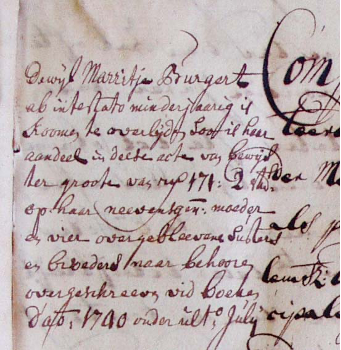 Dewyl Marritje Burgert
ab intestato minderjaarig is
Koomen te overlyde, Soo is haar
aandeel in deese acte van bewys
ter groote van 171: 2
op haar moeder
en vier overgebleevene Susters
en broeders naar behoore
overgeschreeven vid boeken
1740 onder ult.o July
Com
als p